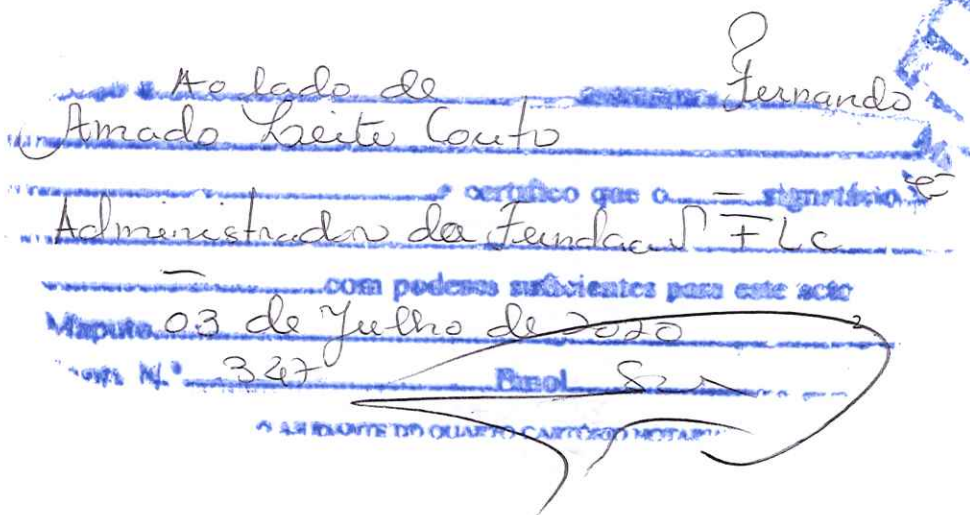 Ao lado de Fernando
Amado Leite Couto
e certifico que o — signatário é
Administrador da Fundacao FLC
— com poderes suficientes para este acto
Maputo 03 de Julho de 2020
N.º 347 Emol.
AJUDANTE DO QUARTO CARTÓRIO